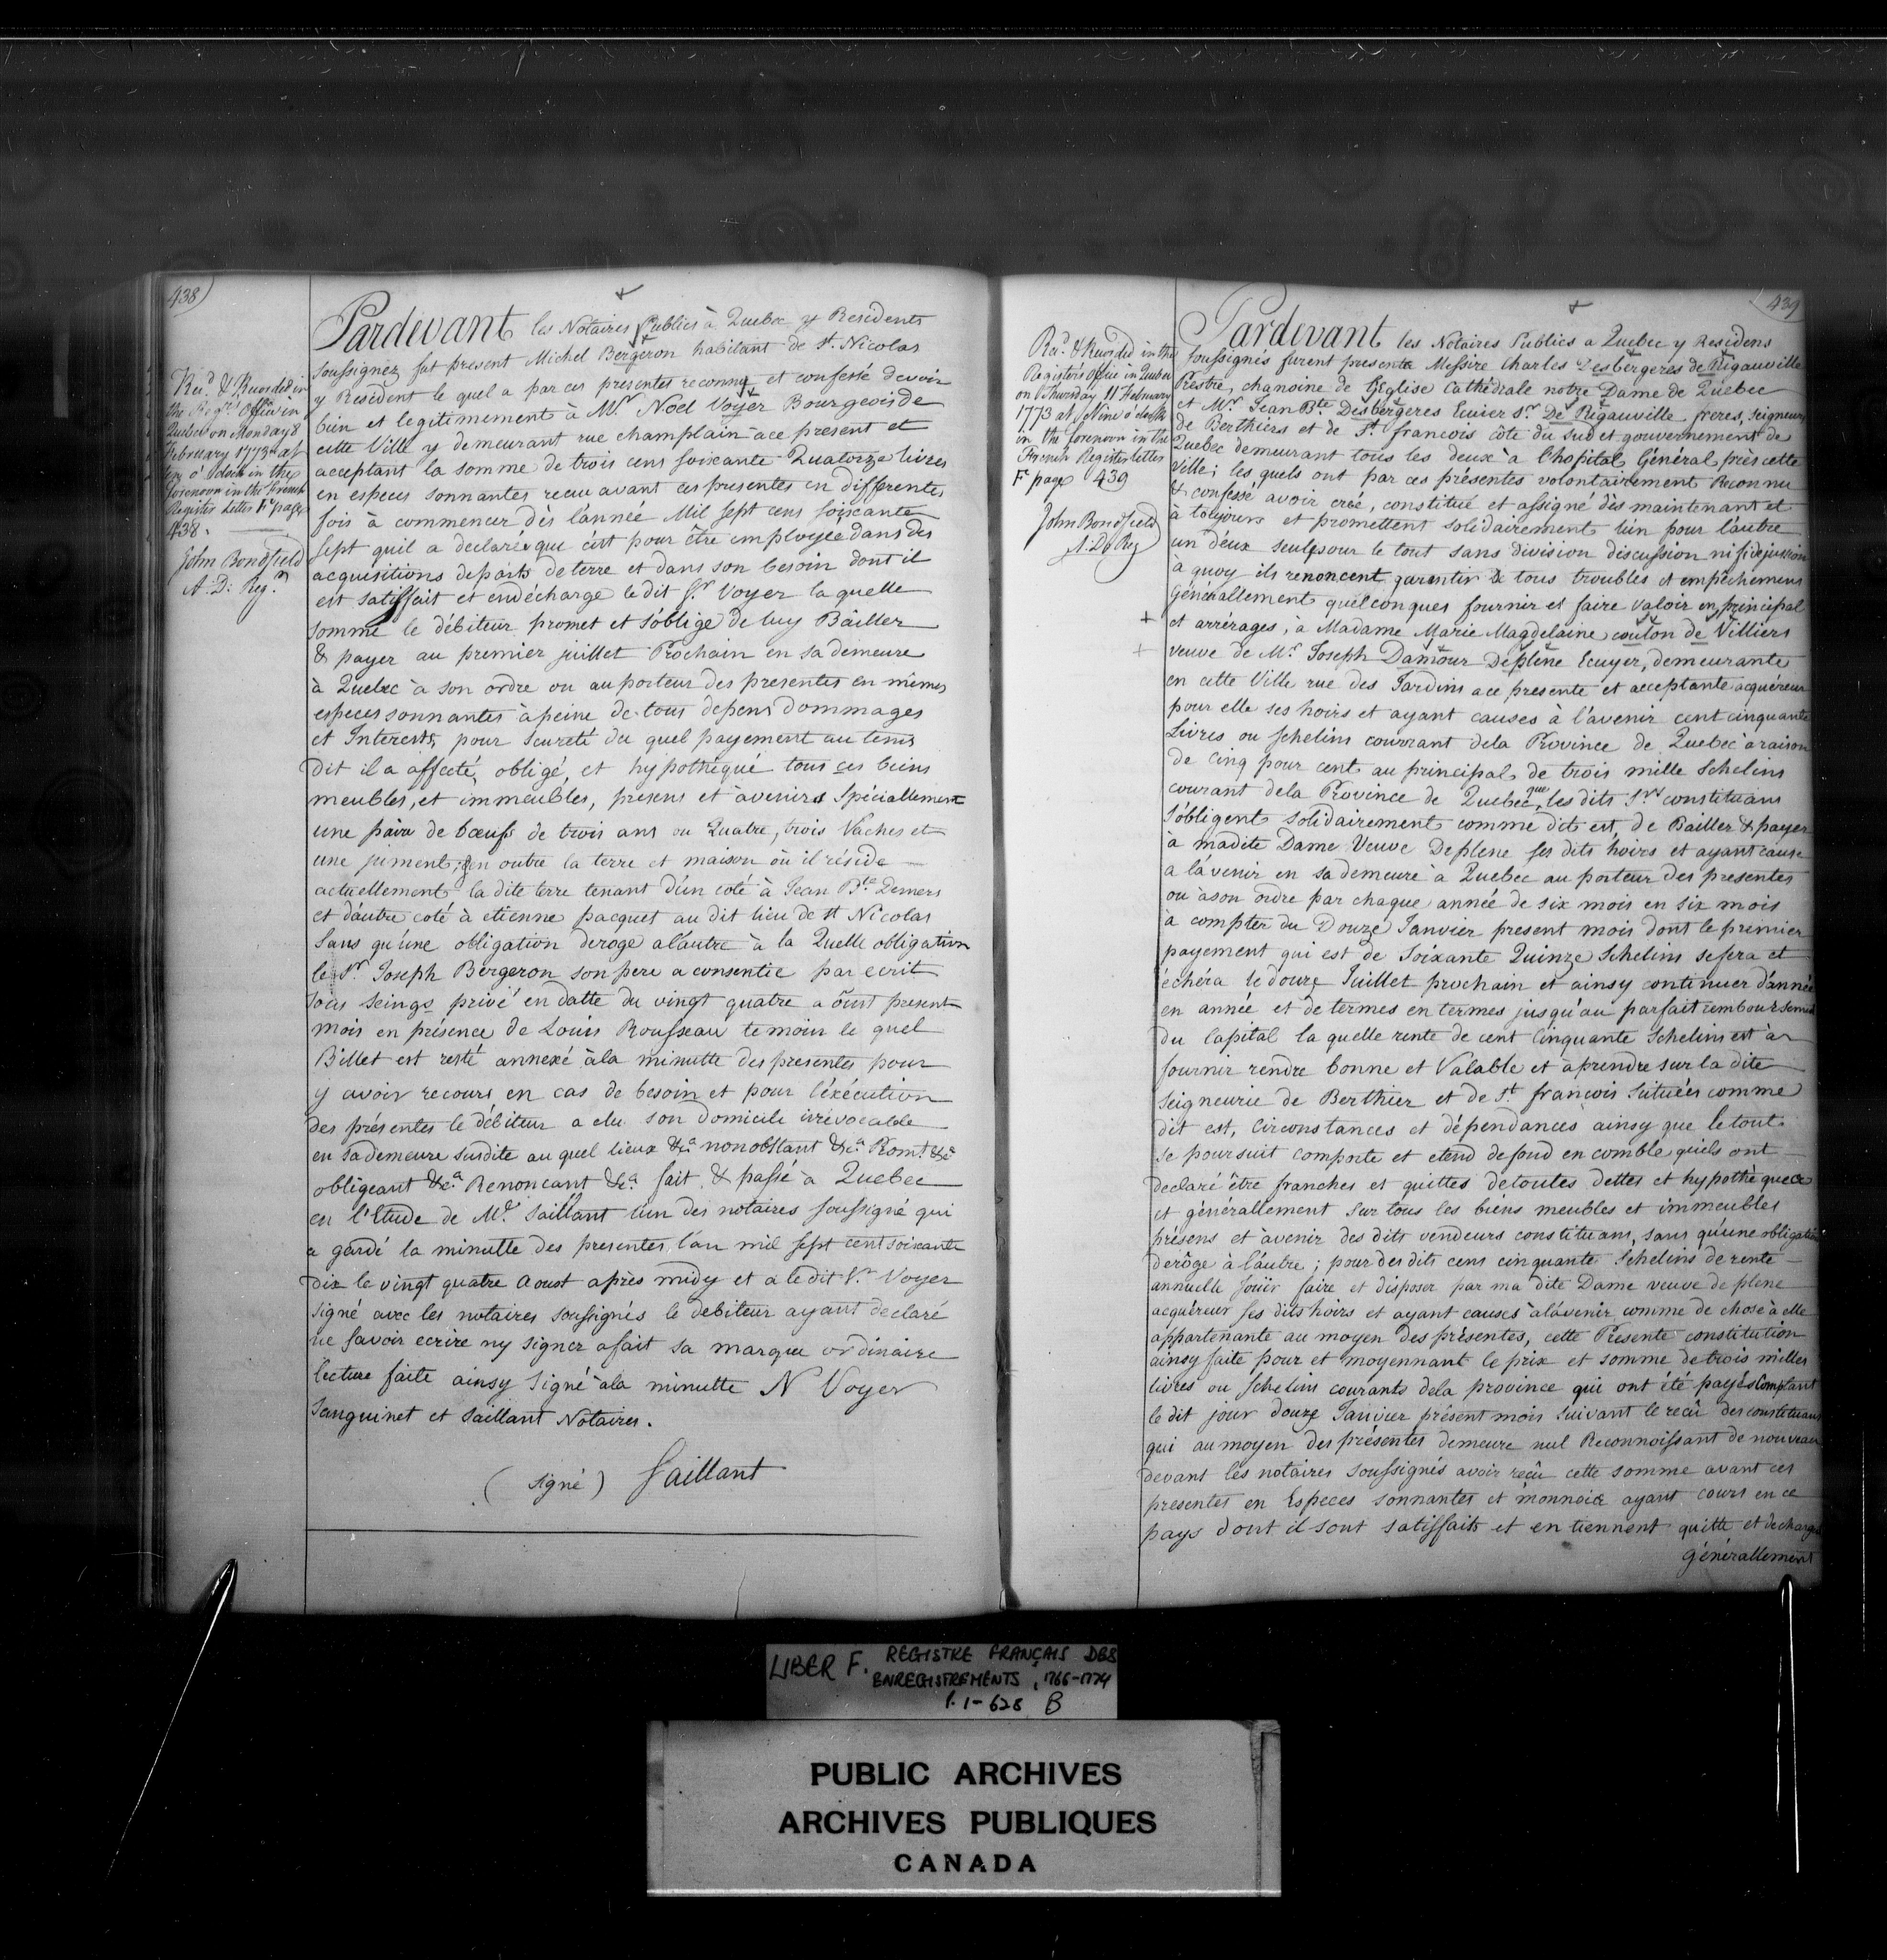 438)
Recd. & Recorded in
the Regrs Office in
Quebec on Monday 8
February 1773 at
ten o'Clock in the
forenoon in the French
Register Letter F page
438.
John Bondfield
A: D: Regr
Pardevant les Notaires Publics à Quebec y Residents
soussignez fut present Michel Bergeron habitant de St. Nicolas
y Resident le quel a par ces presentes reconnu et confessé devoir
bien et legitimement à Mr Noel Voyer Bourgeois de
cette Ville y demeurant rue champlain ace present et
acceptant la somme de trois cens soixante Quatorze livres
en especes sonnantes recu avant ces presentes en differentes
fois à commencer dès l'année Mil sept cens soixante
sept quil a declaré que c'est pour être employée dans des
acquisitions departs de terre et dans son besoin dont il
est satisfait et endécharge le dit Sr Voyer la quelle
somme le débiteur promet et s'oblige de luy Bailler
& payer au premier juillet Prochain en sa demeure
à Quebec à son ordre ou au porteur des presentes en mêmes
especes sonnantes àpeine de tous depens dommages
et Interests, pour seureté du quel payement au tems
dit il a affecté, obligé, et hypothequé tous ces biens
meubles, et immeubles, presens et àvenirs Spéciallement
une paire de bœufs de trois ans ou Quatre, trois Vaches et
une jument; en outre la terre et maison où il réside
actuellement la dite terre tenant d'un coté à Jean Bte Demers
et d'autre coté à etienne pacquet au dit lieu de st Nicolas
Sans qu'une obligation deroge alautre à la Quelle obligation
le Sr Joseph Bergeron son pere a consentie par ecrit
sous seings privé en datte du vingt quatre aôust present
mois en présence de Louis Rousseau temoin le quel
Billet est resté annexé àla minutte des presentes pour
y avoir recours en cas de besoin et pour l'éxécution
des présentes le débiteur a elu son domicile irrévocable
en sa demeure susdite au quel lieux &ca nonobstant &ca Promt. &ca
obligeant &ca Renoncant &ca fait & passé à Quebec
en l'Etude de Me. Saillant l'un des notaires soussigné qui
a gardé la minutte des presentes l'an mil sept cent soixante
dix le vingt quatre Aoust après midy et a le dit Sr Voyer
signé avec les notaires soussignés le debiteur ayant declaré
ne savoir ecrire ny signer afait sa marque ordinaire
lecture faite ainsy Signé àla minutte N Voyer
Sanguinet et Saillant Notaires.
(signé) Saillant
439
Recd. & Recorded in the
Registers Office in Quebec
on Thursday 11 February
1773 at Nine o'clock
in the forenoon in the
French Register letter
F page 439
John Bondfield
A: D: Reg
Pardevant les Notaires Publics a Quebec y Residens
soussignés furent presents Messire Charles Desbergeres de Rigauville
Prestre, chanoine de l'Eglise Cathédrale notre Dame de Quebec
et Mr. Jean Bte Desbergeres Ecuier Sr. De Rigauville freres, Seigneurs
de Berthiers et de St. francois côte du Sud et gouvernement de
Quebec demeurant tous les deux à l'hopital Général près cette
Ville; les quels ont par ces présentes volontairement Reconnu
& confessé avoir créé, constitué et assigné dès maintenant et
à toujours et promettent solidairement l'un pour l'autre
un d'eux seul pour le tout sans division discussion ni fidejussion
à quoy ils renoncent garantir de tous troubles et empêchemens
Générallement quelconques fournir et faire valoir en principal
et arrérages, à Madame Marie Magdelaine coulon de Villiers
veuve de Mr. Joseph Damour Deplene Ecuyer, demeurante
en cette Ville rue des Jardins ace presente et acceptante acquéreur
pour elle ses hoirs et ayant causes à l'avenir cent cinquante
Livres ou schelins courrant dela Province de Quebec à raison
de Cinq pour cent au principal de trois mille Schelins
courant dela Province de Quebec, que les dits Srs constituans
s'obligent solidairement comme dit est, de Bailler & payer
à madite Dame Veuve Deplene ses dits hoirs et ayant cause
a l'avenir en sa demeure à Quebec au porteur des presentes
ou àson ordre par chaque année de six mois en six mois
à compter du Douze Janvier present mois dont le premier
payement qui est de Soixante Quinze Schelins sefera et
échéra le douze Juillet prochain et ainsy continuer d'année
en année et de termes en termes jusqu'au parfait remboursement
du Capital la quelle rente de cent Cinquante Schelins est à
fournir rendre bonne et Valable et àprendre sur la dite
Seigneurie de Berthier et de St francois Situées comme
dit est, Circonstances et dépendances ainsy que le tout
se poursuit comporte et etend defond en comble quils ont
declaré être franches et quittes detoutes dettes et hypothèques
et générallement sur tous les biens meubles et immeubles
présens et àvenir des dits vendeurs constituans, sans qu'une obligation
deroge à l'autre; pour des dits cens cinquante Schelins de rente
annuelle Joüir faire et disposer par ma dite Dame veuve de plene
acquéreur ses dits hoirs et ayant causes àl'avenir comme de chose à elle
appartenante au moyen des présentes, cette Presente constitution
ainsy faite pour et moyennant le prix et somme de trois milles
livres ou Schelins courants dela province qui ont été payés Comptant
le dit jour douze Janvier présent mois suivant le recû des constituans
qui aumoyen des présentes demeure nul Reconnoissant de nouveau
devant les notaires soussignés avoir recû cette somme avant ces
presentes en Especes sonnantes et monnoie ayant cours en ce
pays dont il sont satisfaits et en tiennent quitte et decharge
générallement
LIBER F. REGISTRE FRANÇAIS DES
ENREGISTREMENTS, 1766-1774
P. 1-628 B
PUBLIC ARCHIVES
ARCHIVES PUBLIQUES
CANADA